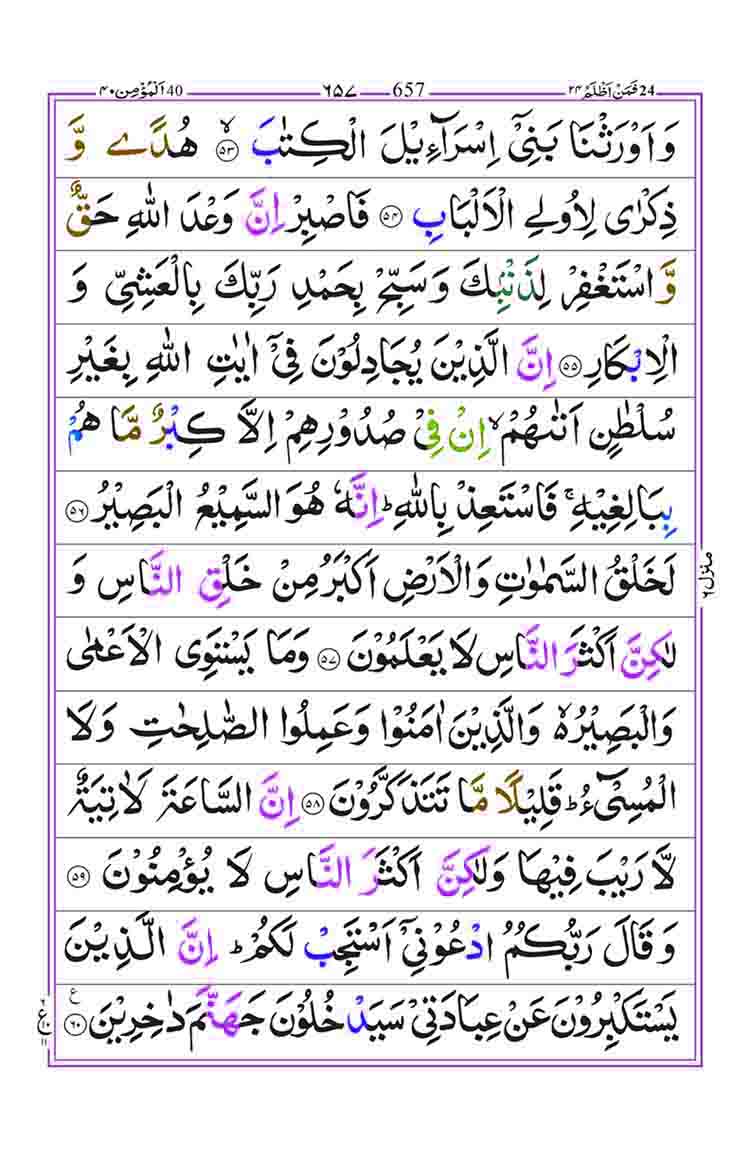 24 فَمَنْ اَظْلَمُ ۲۴ 657 ۶۵۷ 40 اَلْمُؤْمِن ۴۰
وَ اَوْرَثْنَا بَنِيْۤ اِسْرَآءِيْلَ الْكِتٰبَ ۙ‏﴿۵۳﴾ هُدًے وَّ
ذِكْرٰى لِاُولِے الْاَلْبَابِ ﴿۵۴﴾ فَاصْبِرْ اِنَّ وَعْدَ اللّٰهِ حَقٌّ
وَّ اسْتَغْفِرْ لِذَنْۢبِكَ وَ سَبِّحْ بِحَمْدِ رَبِّكَ بِالْعَشِيِّ وَ
الْاِبْكَارِ ﴿۵۵﴾ اِنَّ الَّذِيْنَ يُجَادِلُوْنَ فِيْۤ اٰيٰتِ اللّٰهِ بِغَيْرِ
سُلْطٰنٍ اَتٰىهُمْ ۙ اِنْ فِيْ صُدُوْرِهِمْ اِلَّا كِبْرٌ مَّا هُمْ
بِبَالِغِيْهِ ۚ فَاسْتَعِذْ بِاللّٰهِ ؕ اِنَّهٗ هُوَ السَّمِيْعُ الْبَصِيْرُ ﴿۵۶﴾
لَخَلْقُ السَّمٰوٰتِ وَ الْاَرْضِ اَكْبَرُ مِنْ خَلْقِ النَّاسِ وَ
لٰكِنَّ اَكْثَرَ النَّاسِ لَا يَعْلَمُوْنَ ﴿۵۷﴾ وَمَا يَسْتَوِى الْاَعْمٰى
وَالْبَصِيْرُ ۙ وَالَّذِيْنَ اٰمَنُوْا وَعَمِلُوا الصّٰلِحٰتِ وَلَا
الْمُسِيْٓءُ ؕ قَلِيْلًا مَّا تَتَذَكَّرُوْنَ ﴿۵۸﴾ اِنَّ السَّاعَةَ لَاٰتِيَةٌ
لَّا رَيْبَ فِيْهَا وَلٰكِنَّ اَكْثَرَ النَّاسِ لَا يُؤْمِنُوْنَ ﴿۵۹﴾
وَ قَالَ رَبُّكُمُ ادْعُوْنِيْۤ اَسْتَجِبْ لَكُمْ ؕ اِنَّ الَّذِيْنَ
يَسْتَكْبِرُوْنَ عَنْ عِبَادَتِيْ سَيَدْخُلُوْنَ جَهَنَّمَ دٰخِرِيْنَ ﴿۶۰﴾ ع
منزل ۶
۶
ع ۱۰
۱۱